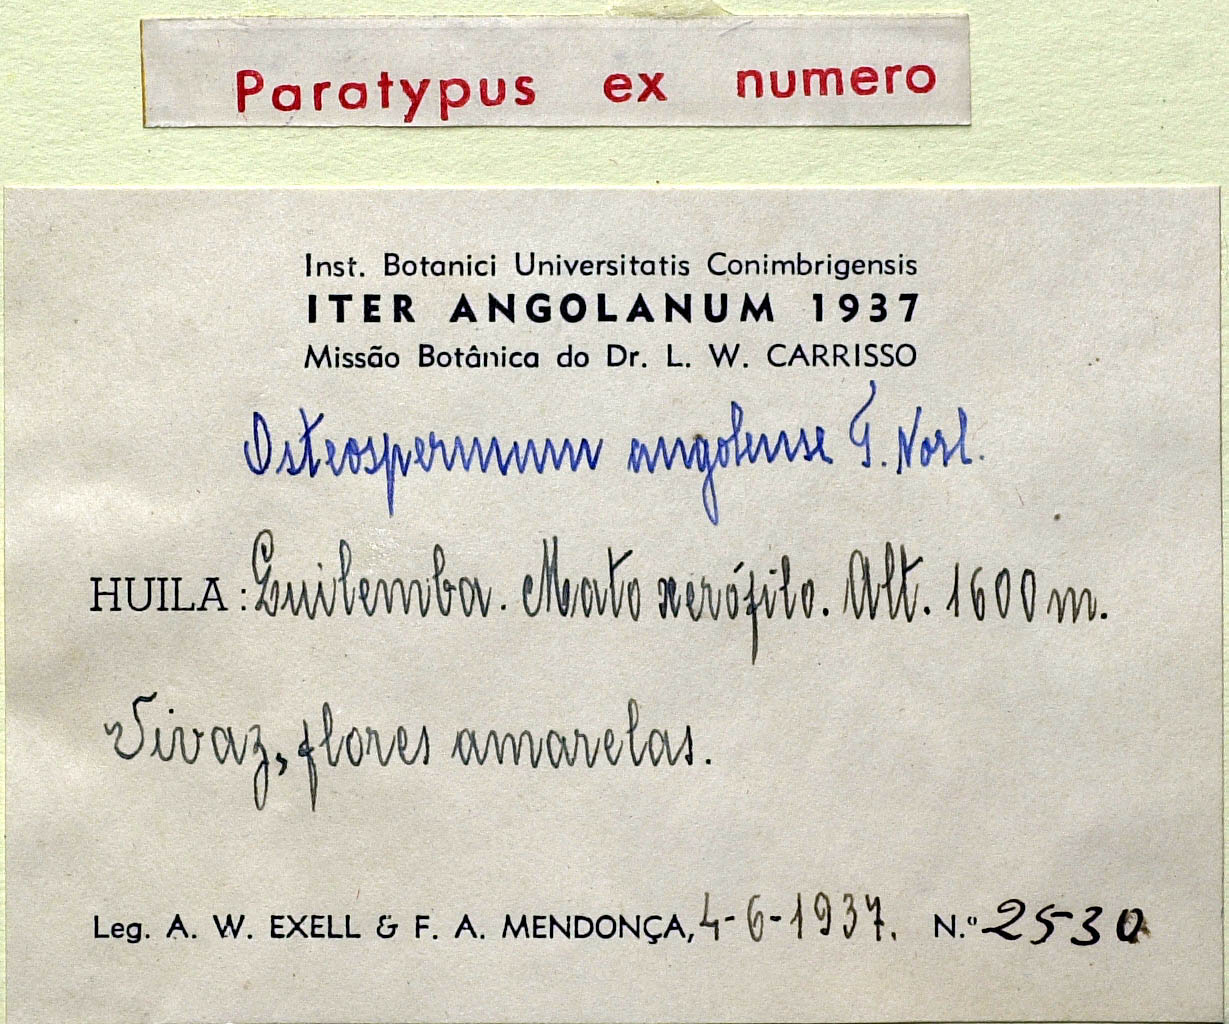 Paratypus ex numero
Inst. Botanici Universitatis Conimbrigensis
ITER ANGOLANUM 1937
Missão Botânica do Dr. L. W. CARRISSO
Osteospermum angolense T. Norl.
HUILA: Quilemba. Mato xerófilo. Alt. 1600 m.
Vivaz, flores amarelas.
Leg. A. W. EXELL & F. A. MENDONÇA, 4-6-1937. N.º 2530